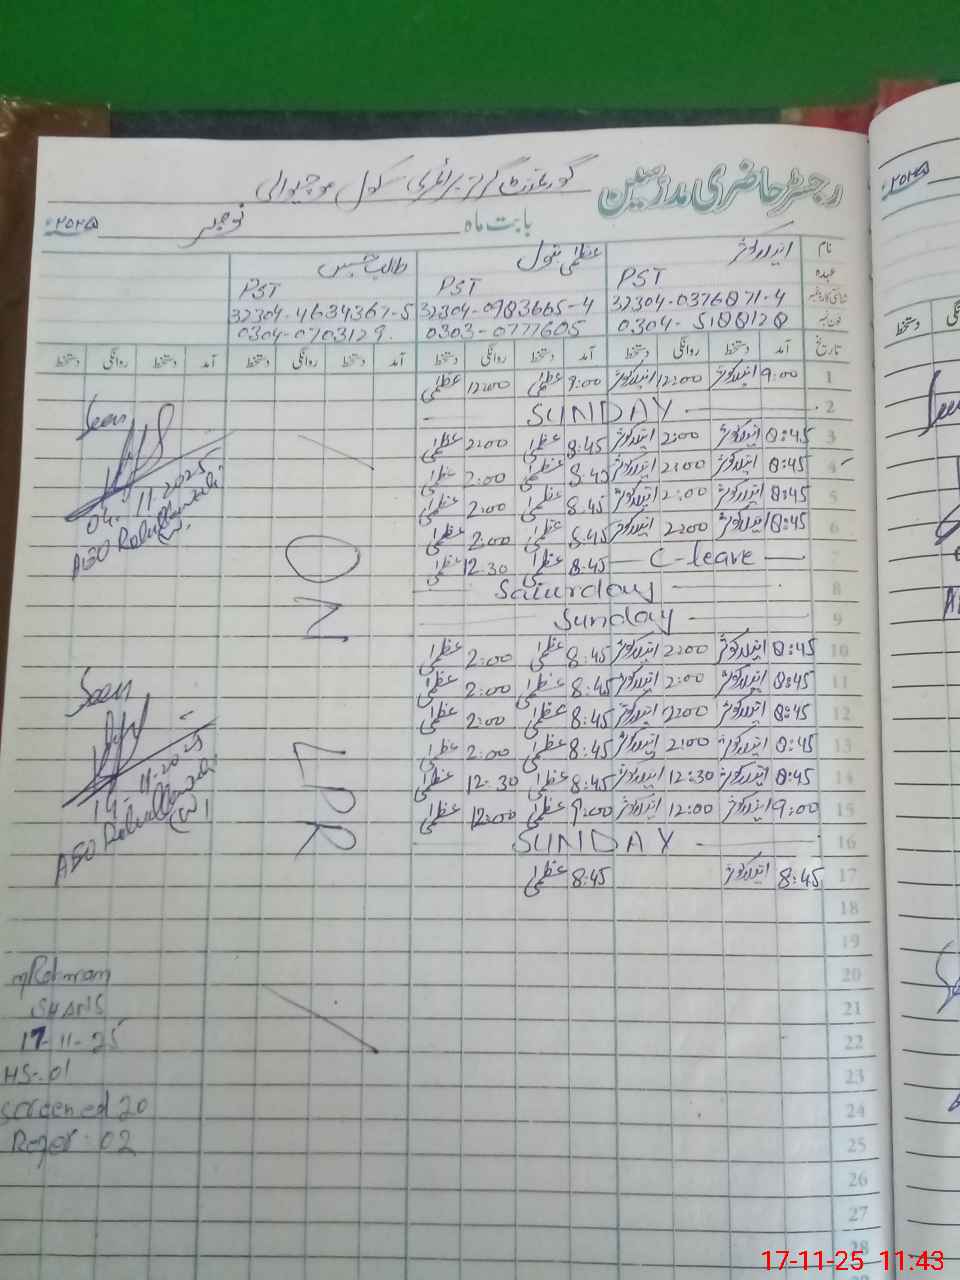 رجسٹر حاضری مدرسین گورنمنٹ گرلز پرائمری سکول
بابت ماہ نومبر ۲۰۲۵
نام
عظمیٰ بتول
طالب حسین
عہدہ PST PST PST
شناختی کارڈ نمبر 32304-0376871-4 32304-0983665-4 32304-4634367-5
فون نمبر 0304-5188128 0303-0777605 0304-0703129
تاریخ آمد دستخط روانگی دستخط آمد دستخط روانگی دستخط آمد دستخط روانگی دستخط آمد دستخط روانگی دستخط
1 9:00 12:00 9:00 عظمیٰ 12:00 عظمیٰ
2 SUNDAY
3 8:45 2:00 8:45 عظمیٰ 2:00 عظمیٰ
4 8:45 2:00 8:45 عظمیٰ 2:00 عظمیٰ
5 8:45 2:00 8:45 عظمیٰ 2:00 عظمیٰ
6 8:45 2:00 8:45 عظمیٰ 2:00 عظمیٰ
7 C-leave 8:45 عظمیٰ 12:30 عظمیٰ
8 Saturday
9 Sunday
10 8:45 2:00 8:45 عظمیٰ 2:00 عظمیٰ
11 8:45 2:00 8:45 عظمیٰ 2:00 عظمیٰ
12 8:45 2:00 8:45 عظمیٰ 2:00 عظمیٰ
13 8:45 2:00 8:45 عظمیٰ 2:00 عظمیٰ
14 8:45 12:30 8:45 عظمیٰ 12:30 عظمیٰ
15 9:00 12:00 9:00 عظمیٰ 12:00 عظمیٰ
16 SUNDAY
17 8:45 8:45 عظمیٰ
18
19
20
21
22
23
24
25
26
27
28
ON LPR
Seen
04-11-2025
AEO
(W)
Seen
14-11-2025
AEO
(W)
SHANS
17-11-25
HS-01
screened 20
Refer-02
۲۰۲۵
17-11-25 11:43